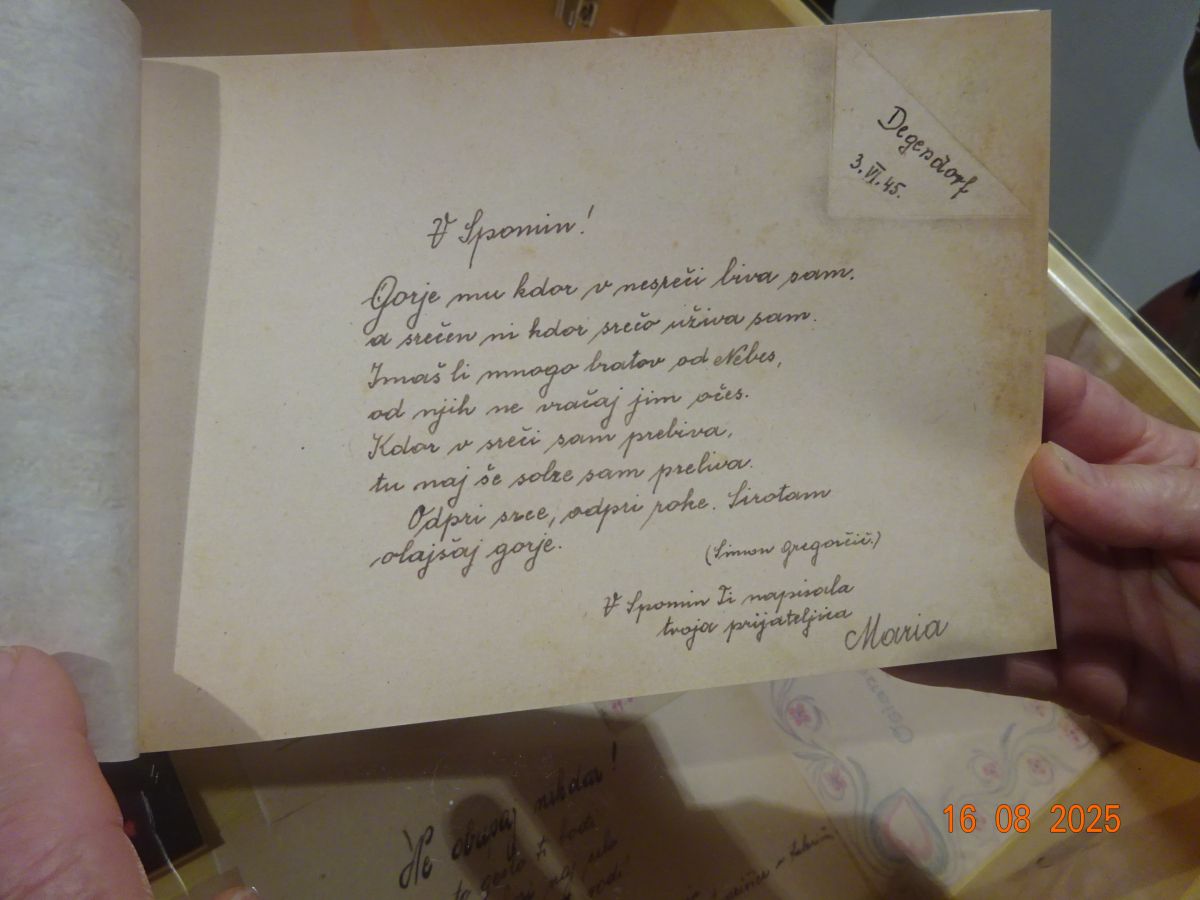 Degensdorf
3.VI.45.
V Spomin!
Gorje mu kdor v nesreči biva sam.
a srečen ni kdor srečo uživa sam.
Imaš li mnogo bratov od Nebes,
od njih ne vračaj jim očes.
Kdor v sreči sam prebiva,
tu naj še solze sam preliva.
Odpri srce, odpri roke. Sirotam
olajšaj gorje.
(Simon Gregorčič.)
V Spomin Ti napisala
tvoja prijateljica
Maria
Ne obupaj nikdar!
16 08 2025